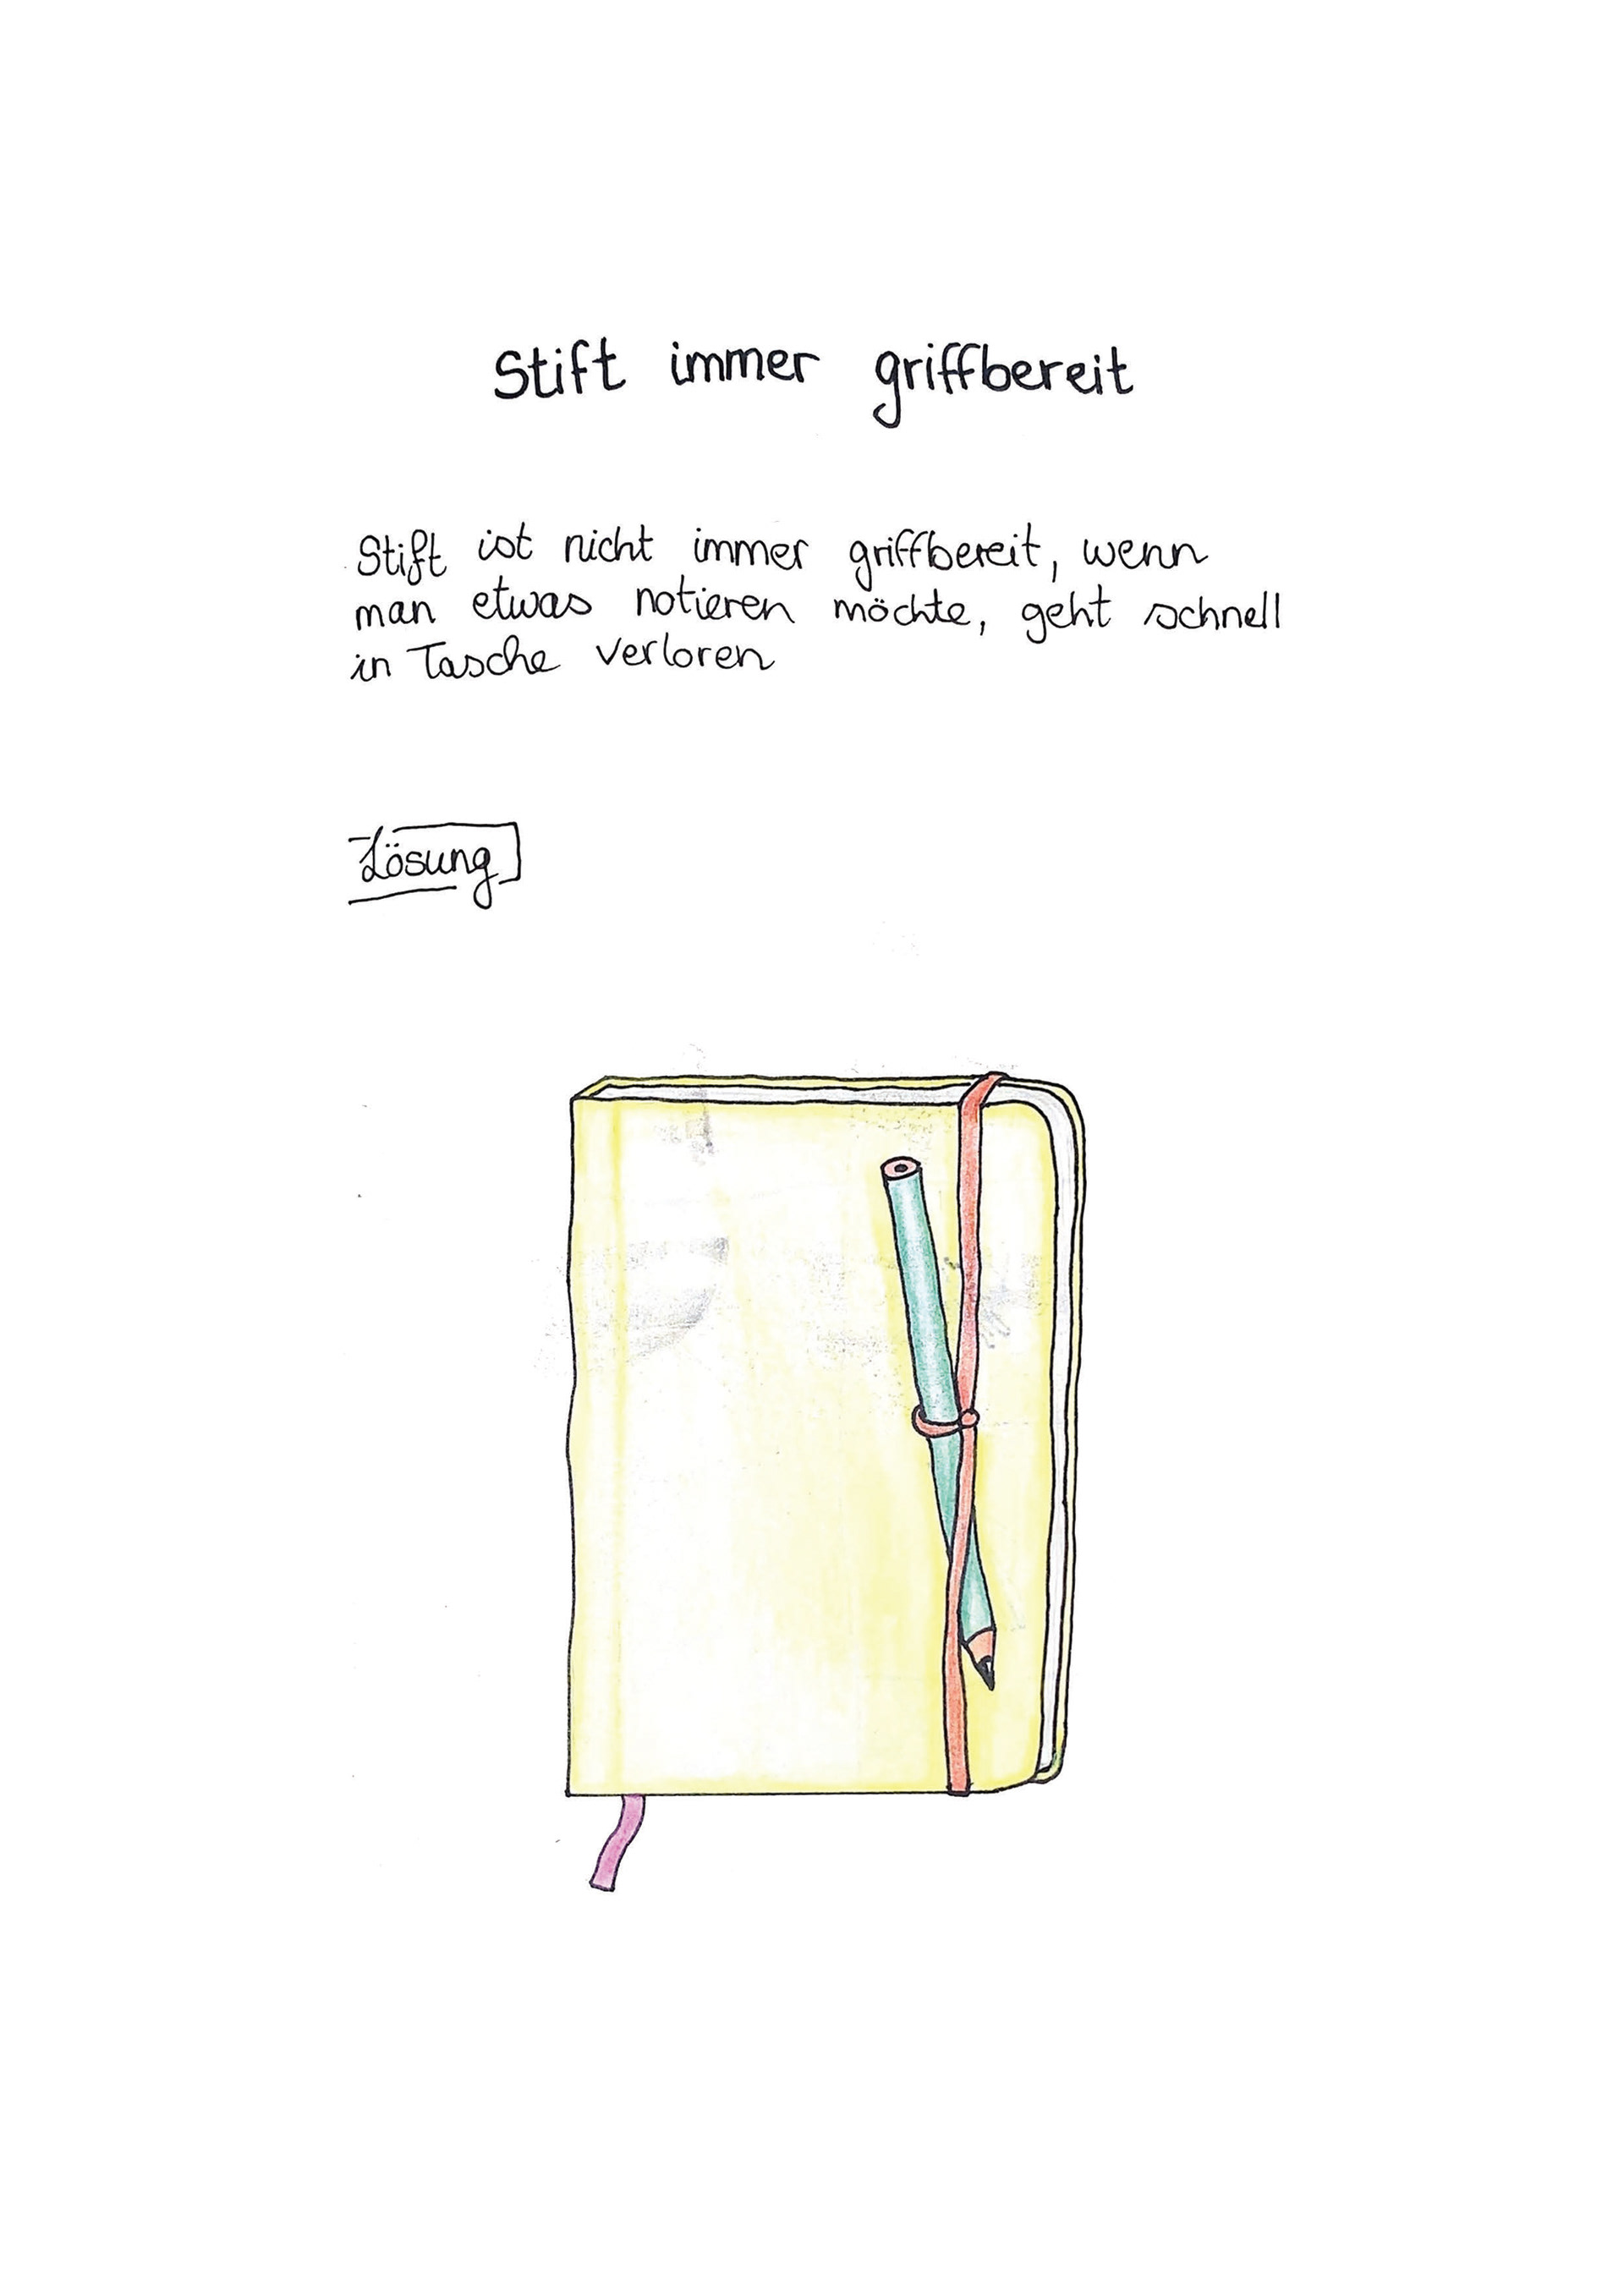 Stift immer griffbereit
Stift ist nicht immer griffbereit, wenn
man etwas notieren möchte, geht schnell
in Tasche verloren
Lösung